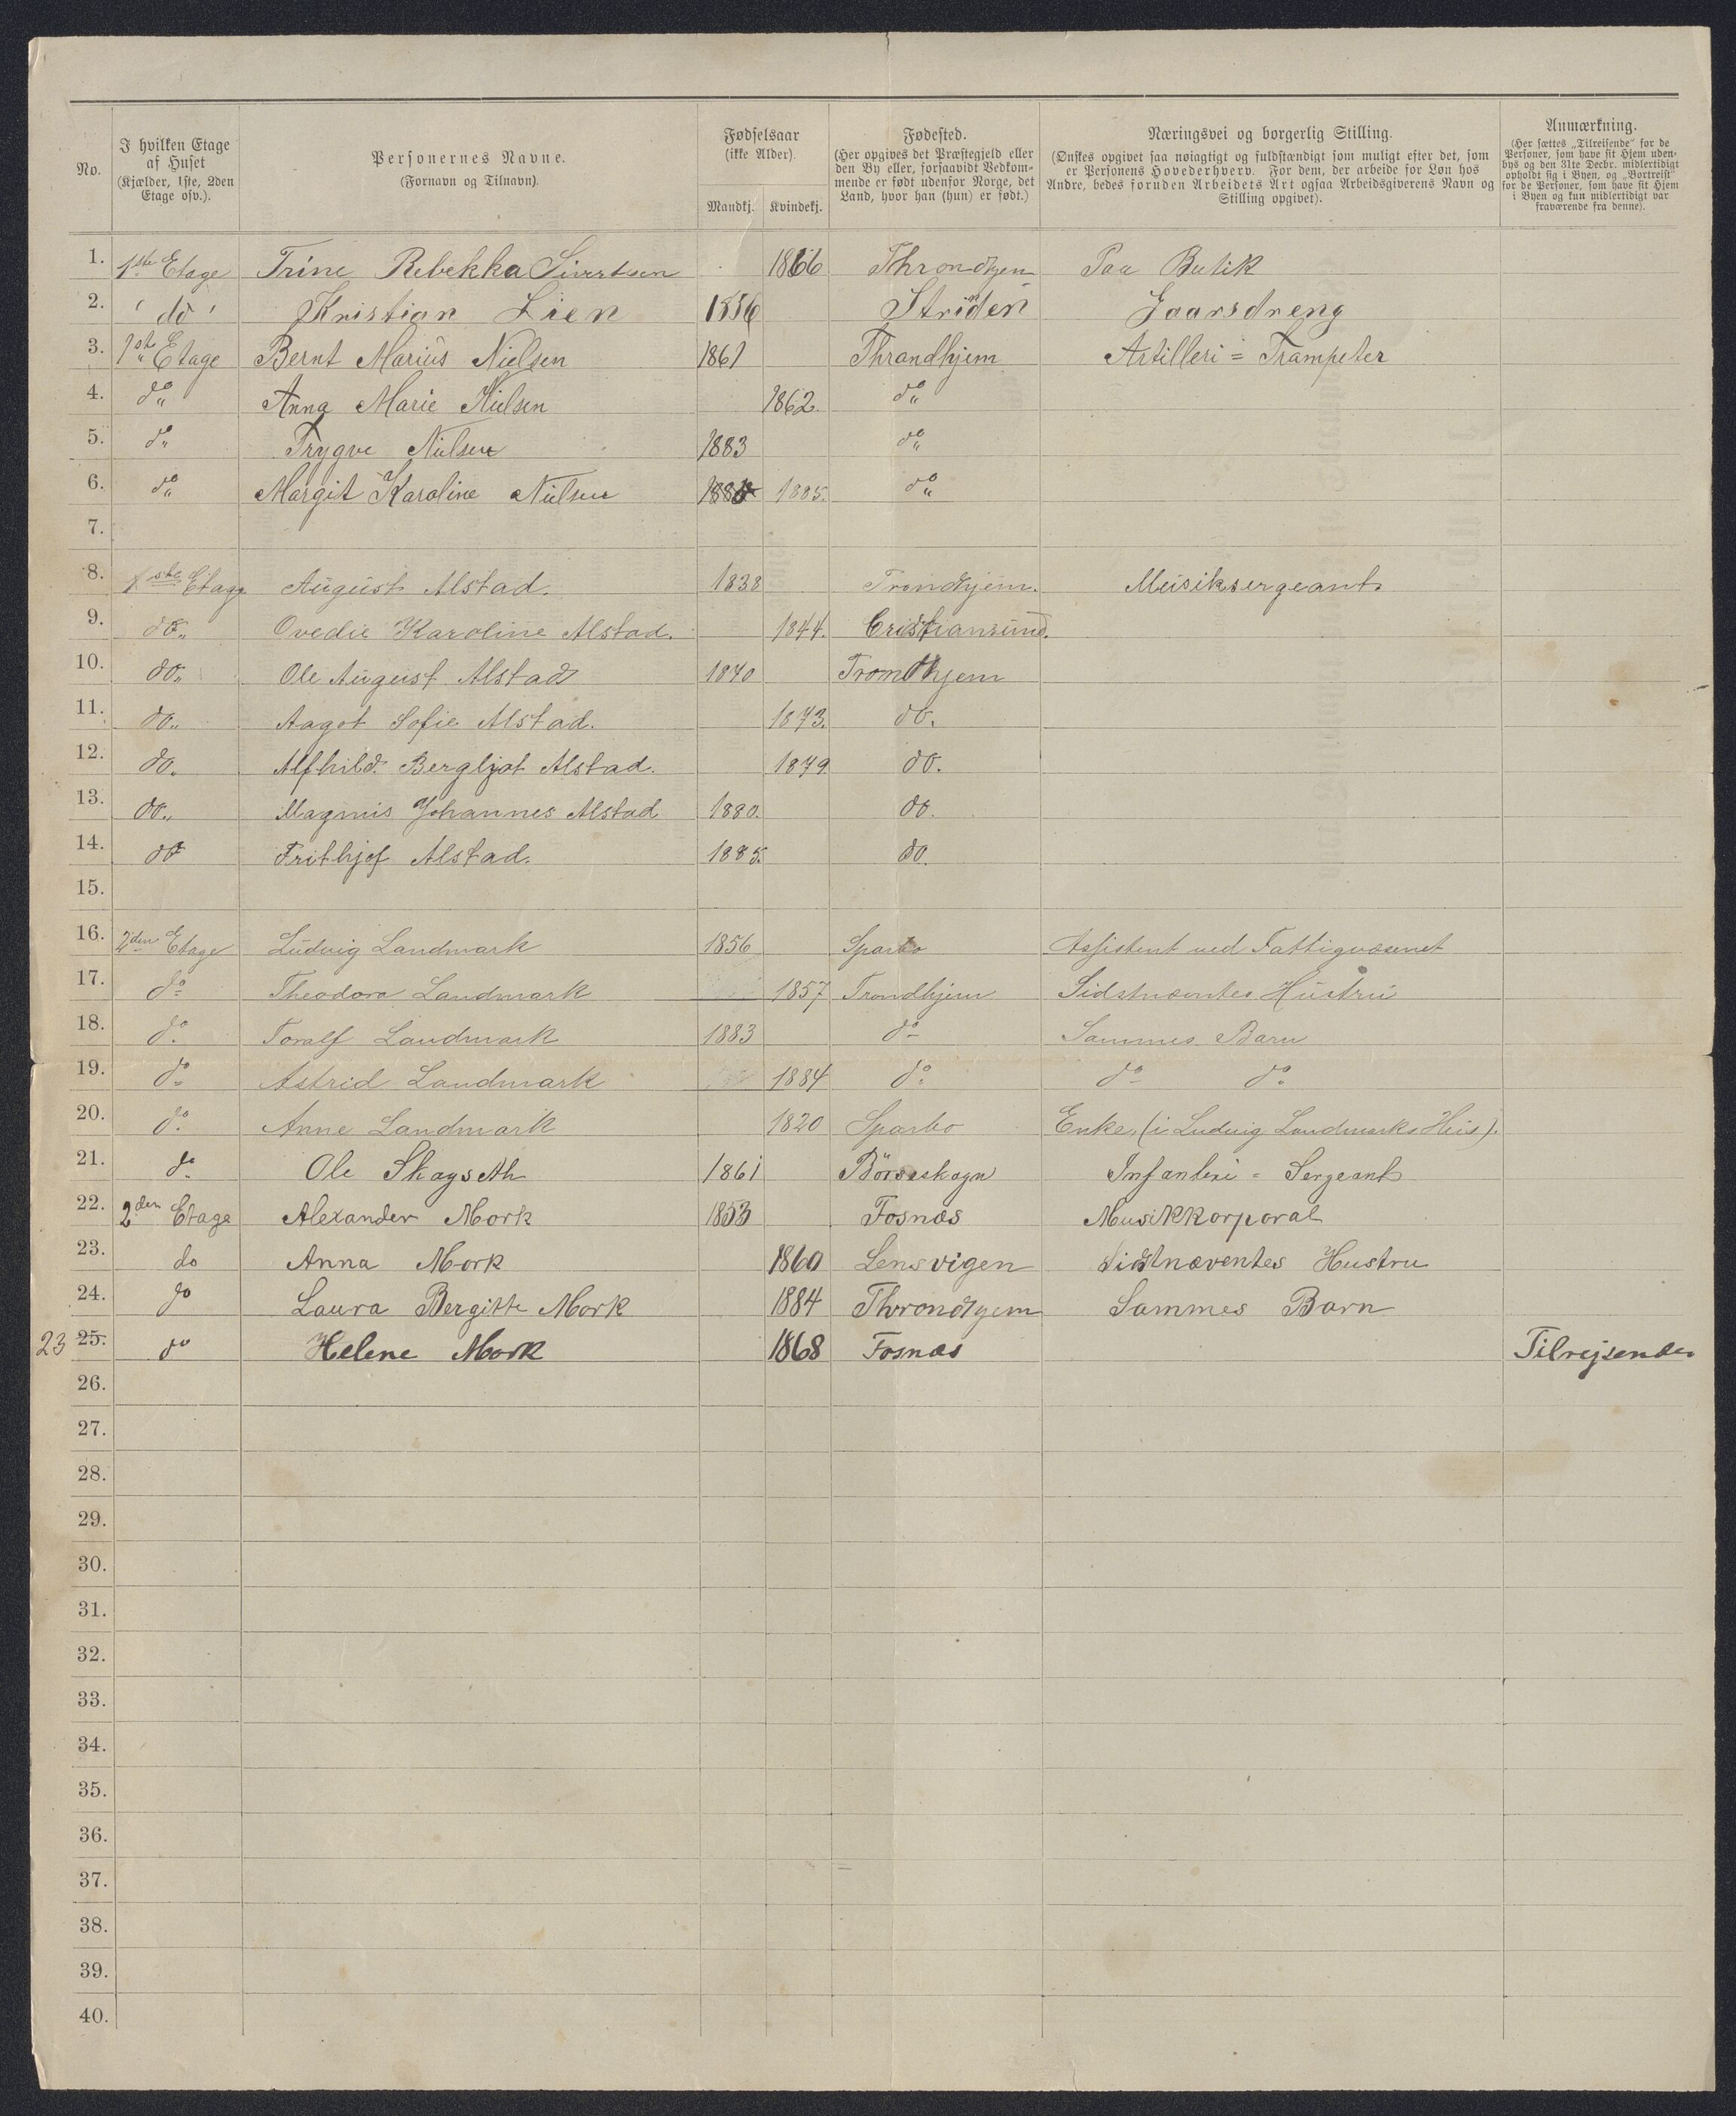 No.
I hvilken Etage af Huset (Kjælder, 1ste, 2den Etage osv.).
Personernes Navne. (Fornavn og Tilnavn).
Fødselsaar (ikke Alder). Mandkj. Kvindekj.
Fødested. (Her opgives det Præstegjeld eller den By eller, forsaavidt Vedkommende er født udenfor Norge, det Land, hvor han (hun) er født.)
Næringsvei og borgerlig Stilling. (Ønskes opgivet saa nøiagtigt og fuldstændigt som muligt efter det, som er Personens Hovederhverv. For dem, der arbeide for Løn hos Andre, bedes foruden Arbeidets Art ogsaa Arbeidsgiverens Navn og Stilling opgivet).
Anmærkning. (Her sættes „Tilreisende" for de Personer, som have sit Hjem udenbys og den 31te Decbr. midlertidigt opholdt sig i Byen, og „Bortreist" for de Personer, som have sit Hjem i Byen og kun midlertidigt var fraværende fra denne).
1. 1ste Etage Trine Rebekka Sivertsen 1866 Throndhjem Paa Butik
2. " do " Kristian Lien 1856 Strinden Gaarsdreng
3. 1ste Etage Bernt Marius Nielsen 1861 Throndhjem Artilleri = Trompeter
4. do Anna Marie Nielsen 1862. do
5. do Trygve Nielsen 1883 do
6. do Margit Karoline Nielsen 1885. do
7.
8. 1ste Etage August Alstad. 1838 Trondhjem. Musiksergeant.
9. do Ovedie Karoline Alstad. 1844. Cristiansund.
10. do Ole August Alstad 1870 Trondhjem
11. do Aagot Sofie Alstad. 1873. do.
12. do. Alfhild Bergljot Alstad. 1879 do.
13. do. Magnus Johannes Alstad 1880. do.
14. do Frithjof Alstad. 1885. do.
15.
16. 2den Etage Ludvig Landmark 1856 Sparbo Assistent ved Fattigvæsenet
17. do Theodora Landmark 1857 Trondhjem Sidstnævntes Hustru
18. do Toralf Landmark 1883 do Sammes Barn
19. do Astrid Landmark 1884 do do do
20. do Anne Landmark 1820 Sparbo Enke, (i Ludvig Landmarks Hus).
21. do Ole Skagseth 1861 Börseskogn Infanteri = Sergeant
22. 2den Etage Alexander Mork 1853 Fosnæs Musikkorporal
23. do Anna Mork 1860 Lensvigen Sidstnæventes Hustru
24. do Laura Bergitte Mork 1884 Throndhjem Sammes Barn
23 25. do Helene Mork 1868 Fosnæs Tilrejsende
26.
27.
28.
29.
30.
31.
32.
33.
34.
35.
36.
37.
38.
39.
40.